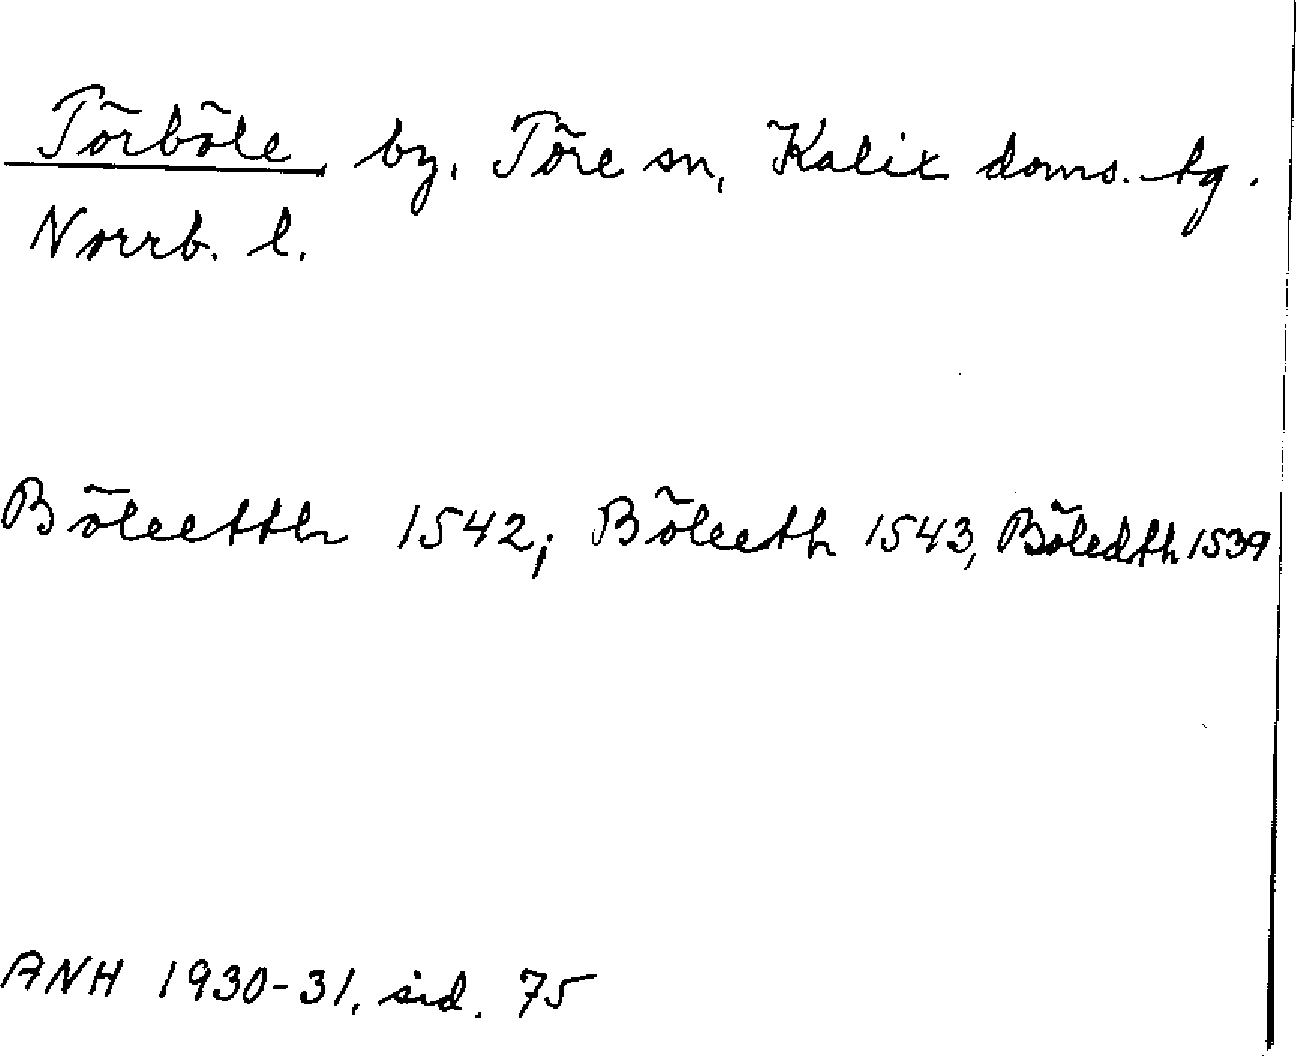 Törböle, by. Töre sn, Kalix doms. tg.
Norrb. l.
Böleetth 1542; Böleeth 1543, Böledth 1539
ANH 1930-31, sid. 75